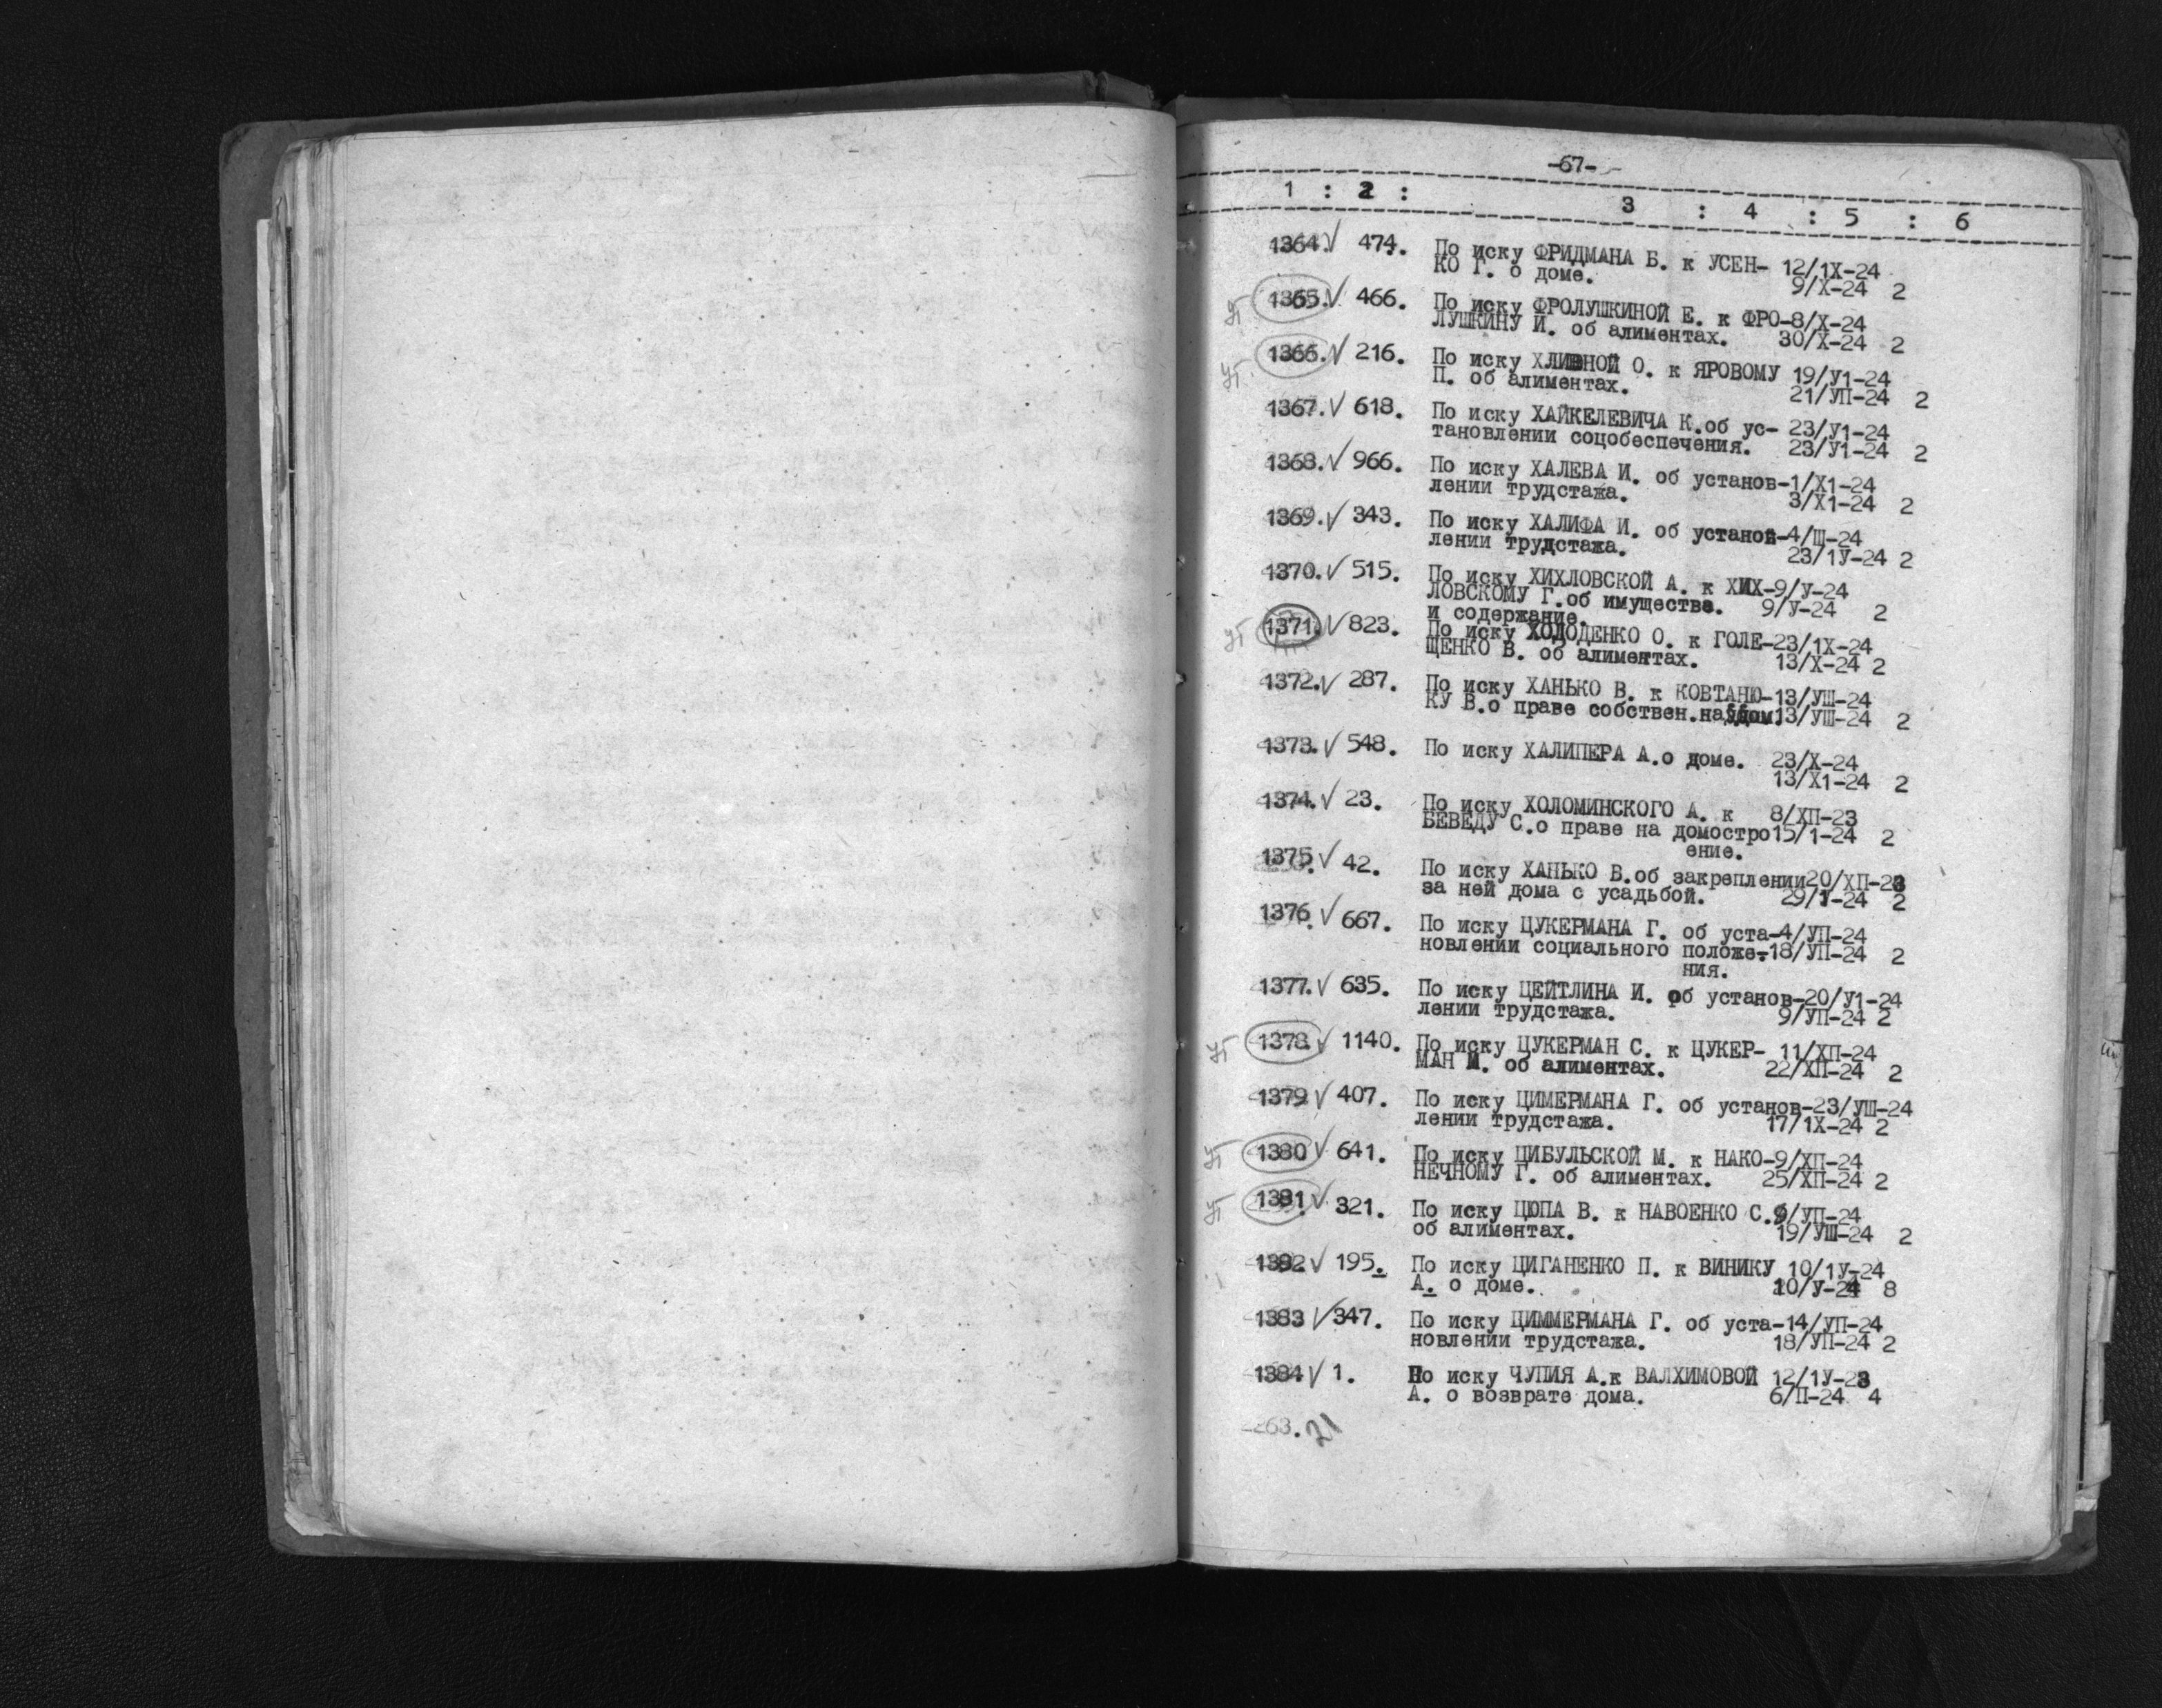 -67-
1 : 2 : 3 : 4 : 5 : 6
1364. √ 474. По иску ФРИДМАНА Б. к УСЕН- 12/1Х-24
КО Г. о доме. 9/Х-24 2
1365. √ 466. По иску ФРОЛУШКИНОЙ Е. к ФРО-8/Х-24
ЛУШКИНУ И. об алиментах. 30/Х-24 2
1366. √ 216. По иску О. к ЯРОВОМУ 19/У1-24
П. об алиментах. 21/УП-24 2
1367. √ 618. По иску ХАЙКЕЛЕВИЧА К.об ус- 23/У1-24
тановлении соцобеспечения. 23/У1-24 2
1368. √ 966. По иску ХАЛЕВА И. об установ-1/Х1-24
лении трудстажа. 3/Х1-24 2
1369. √ 343. По иску ХАЛИФА И. об установ-4/Ш-24
лении трудстажа. 23/1У-24 2
1370. √ 515. По иску ХИХЛОВСКОЙ А. к ХИХ-9/У-24
ЛОВСКОМУ Г.об имуществе. 9/У-24 2
и содержание.
1371. √ 823. По иску ХОЛОДЕНКО О. к ГОЛЕ-23/1Х-24
ЩЕНКО В. об алиментах. 13/Х-24 2
1372. √ 287. По иску ХАНЬКО В. к КОВТАНЮ-13/УШ-24
КУ В.о праве собствен.на дом.13/УШ-24 2
1373. √ 548. По иску ХАЛИПЕРА А.о доме. 23/Х-24
13/Х1-24 2
1374. √ 23. По иску ХОЛОМИНСКОГО А. к 8/ХП-23
БЕВЕДУ С.о праве на домостро15/1-24 2
ение.
1375 √ 42. По иску ХАНЬКО В.об закреплении20/ХП-23
за ней дома с усадьбой. 29/1-24 2
1376 √ 667. По иску ЦУКЕРМАНА Г. об уста-4/УП-24
новлении социального положе-18/УП-24 2
ния.
1377. √ 635. По иску ЦЕЙТЛИНА И. об установ-20/У1-24
лении трудстажа. 9/УП-24 2
1378 √ 1140. По иску ЦУКЕРМАН С. к ЦУКЕР- 11/ХП-24
МАН М. об алиментах. 22/ХП-24 2
1379 √ 407. По иску ЦИМЕРМАНА Г. об установ-23/УШ-24
лении трудстажа. 17/1Х-24 2
1380 √ 641. По иску ЦИБУЛЬСКОЙ М. к НАКО-9/ХП-24
НЕЧНОМУ Г. об алиментах. 25/ХП-24 2
1381 √ 321. По иску ЦЮПА В. к НАВОЕНКО С.9/УП-24
об алиментах. 19/УШ-24 2
1382 √ 195. По иску ЦИГАНЕНКО П. к ВИНИКУ 10/1У-24
А. о доме. 10/У-24 8
1383 √ 347. По иску ЦИММЕРМАНА Г. об уста-14/УП-24
новлении трудстажа. 18/УП-24 2
1384 √ 1. По иску ЧУПИЯ А.к ВАЛХИМОВОЙ 12/1У-23
А. о возврате дома. 6/П-24 4
21